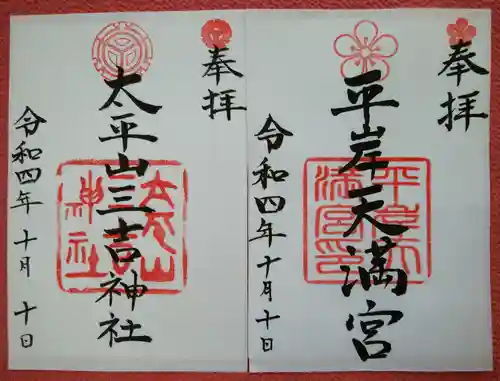 奉拝
平岸天満宮
平岸天満宮印
令和四年十月十日
奉拝
太平山三吉神社
令和四年十月十日